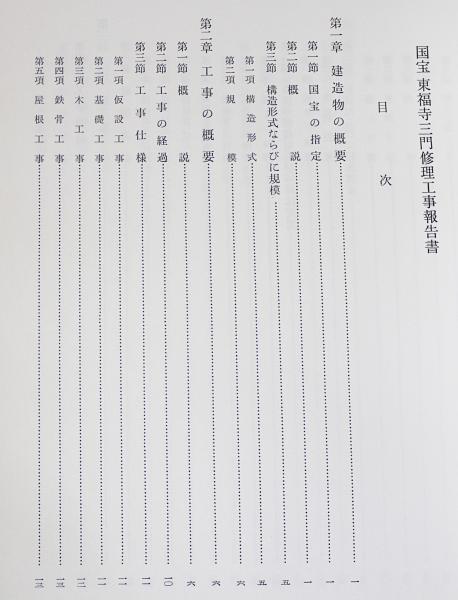 国宝 東福寺三門修理工事報告書
目次
第一章 建造物の概要……一
第一節 国宝の指定……一
第二節 概説……一
第三節 構造形式ならびに規模……五
第一項 構造形式……五
第二項 規模……六
第二章 工事の概要……六
第一節 概説……六
第二節 工事の経過……一〇
第三節 工事仕様……一一
第一項 仮設工事……一一
第二項 基礎工事……一一
第三項 木工事……一二
第四項 鉄骨工事……一三
第五項 屋根工事……一三